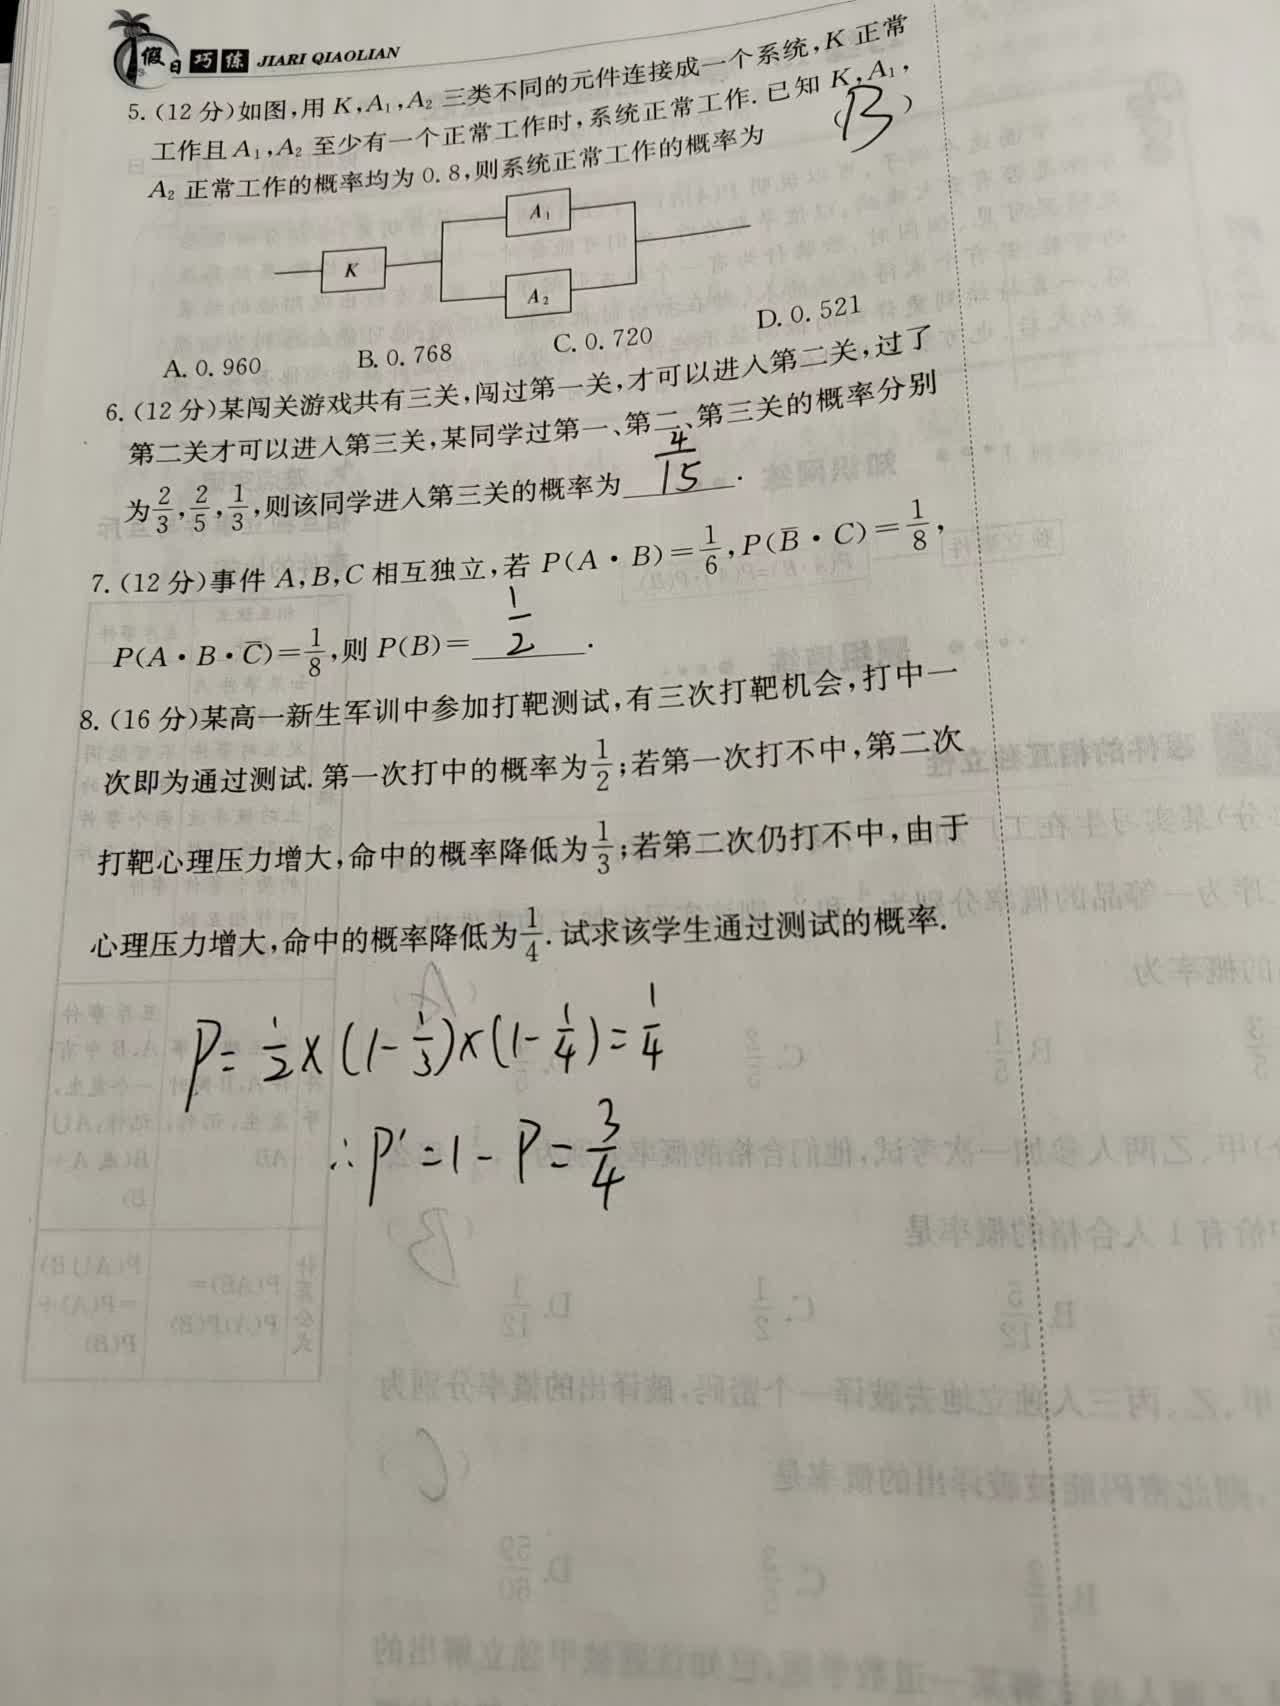 假日巧练 JIARI QIAOLIAN
5. (12分)如图,用 K,A₁,A₂ 三类不同的元件连接成一个系统,K 正常
工作且 A₁,A₂ 至少有一个正常工作时,系统正常工作. 已知 K,A₁,
A₂ 正常工作的概率均为 0.8,则系统正常工作的概率为 (B)
A₁
K
A₂
A. 0.960 B. 0.768 C. 0.720 D. 0.521
6. (12分)某闯关游戏共有三关,闯过第一关,才可以进入第二关,过了
第二关才可以进入第三关,某同学过第一、第二、第三关的概率分别
为2/3,2/5,1/3,则该同学进入第三关的概率为 4/15 .
7. (12分)事件 A,B,C 相互独立,若 P(A·B)=1/6,P(B̅·C)=1/8,
P(A·B·C̅)=1/8,则 P(B)= 1/2 .
8. (16分)某高一新生军训中参加打靶测试,有三次打靶机会,打中一
次即为通过测试. 第一次打中的概率为1/2;若第一次打不中,第二次
打靶心理压力增大,命中的概率降低为1/3;若第二次仍打不中,由于
心理压力增大,命中的概率降低为1/4. 试求该学生通过测试的概率.
P=1/2×(1-1/3)×(1-1/4)=1/4
∴P'=1-P=3/4